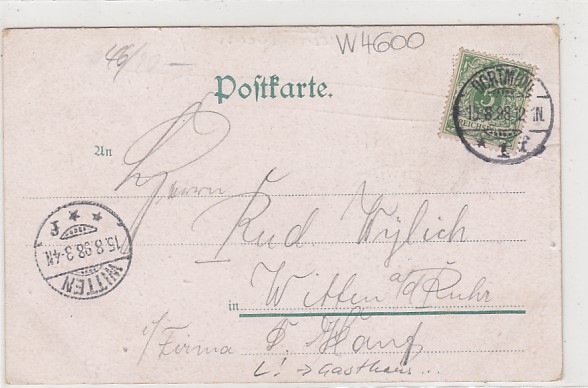 46/
W4600
Postkarte.
DORTMUND
15.8.98.12-1N.
* 1 f
5
REICHSPOST
An
Herrn
Rud. Wylich
WITTEN
15.8.98.3-4N.
* * f
in Witten a/d Ruhr
i/Firma F. Hanf
L! → Gasthaus...